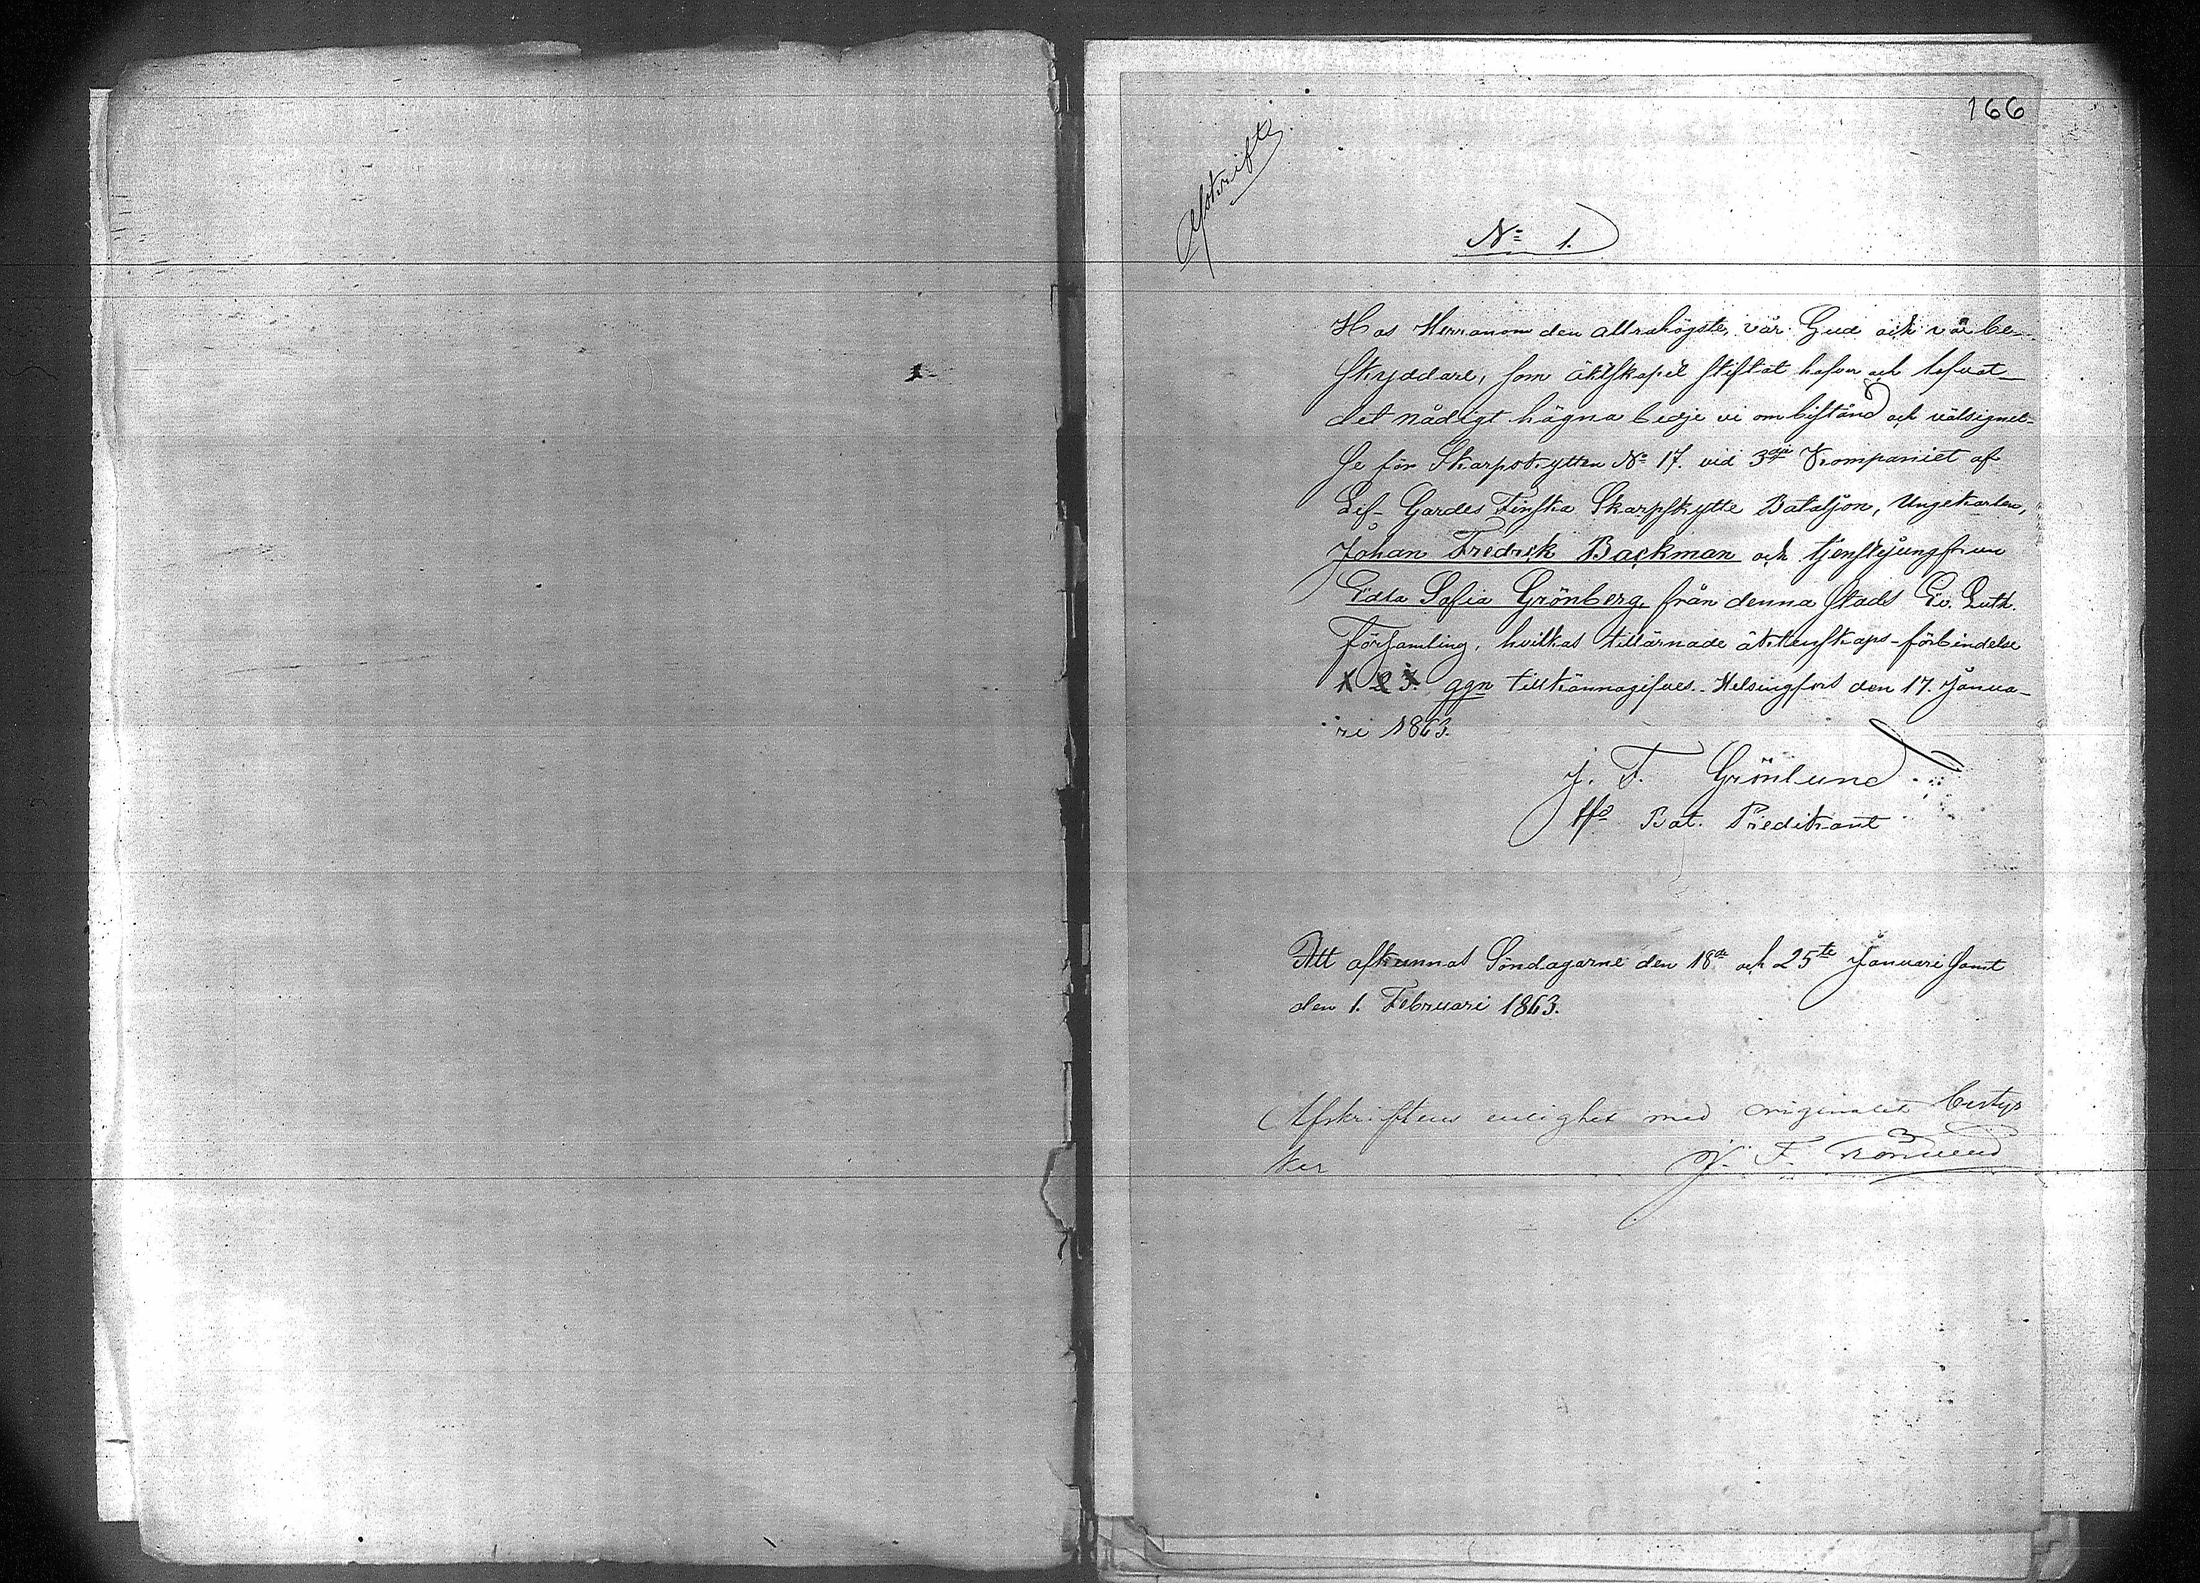 166
Afskrift.
No 1.
Hos Herranom den allrahögste, vår Gud och vår be-
skyddare, som äktskapet stiftat hafver och lofvat
det nådigt hägna bedje vi om bistånd och välsignel-
se för Skarpskytten No 17. vid 3dje Kompaniet af
Lif-Gardes Finska Skarpskytte Bataljon, Ungekarlen,
Johan Fredrik Backman och tjenstejungfrun
Edla Sofia Grönberg, från denna stads Ev. Luth.
Församling, hvilkas tillärnade äktenskaps-förbindelse
1 2 3. ggn tillkännagifves. Helsingfors den 17. Janua-
ri 1863.
J. F. Grönlund
Bat. Predikant
Att afkunnas Söndagarne den 18de och 25te Januari samt
den 1. Februari 1863.
Afskriftens enlighet med originalet bestyr
ker J. F. Grönlund